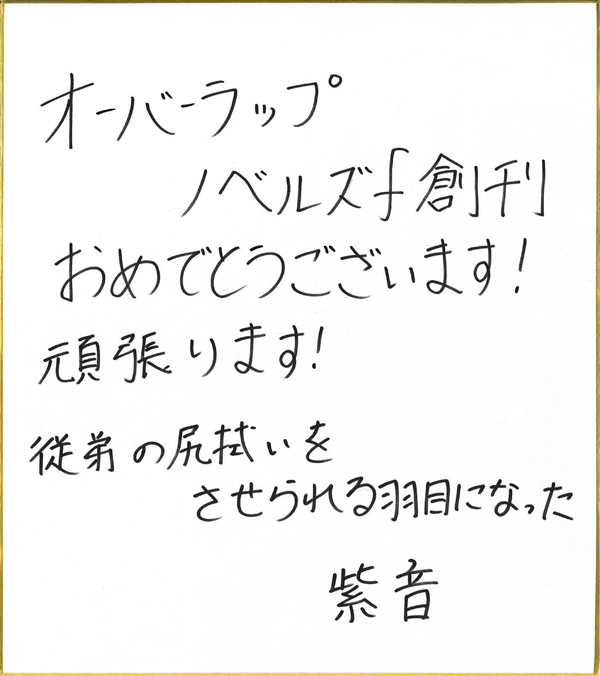 オーバーラップ
ノベルズf創刊
おめでとうございます!
頑張ります!
従弟の尻拭いを
させられる羽目になった
紫音